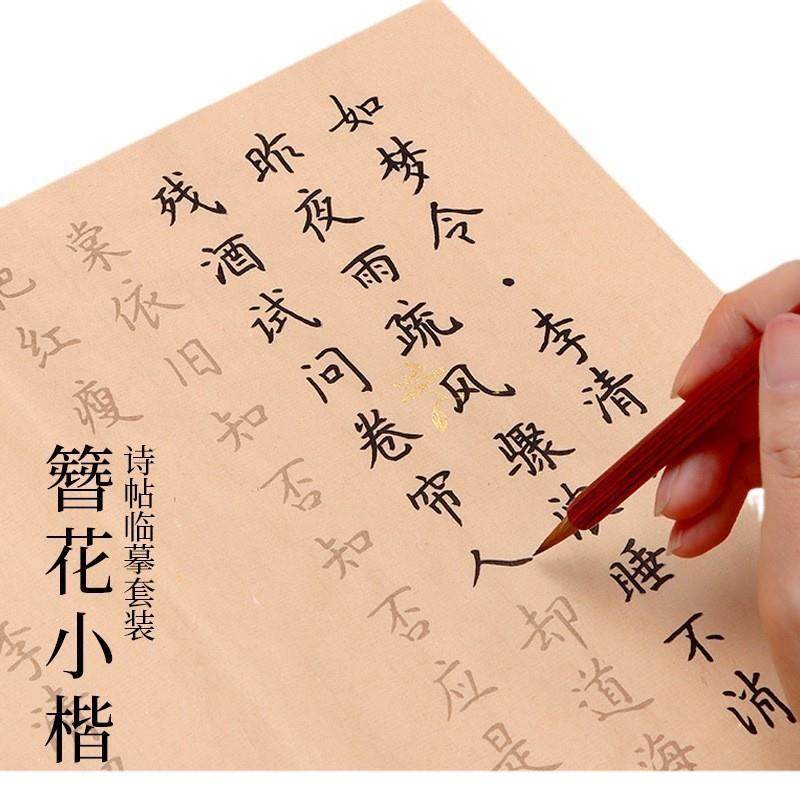 如梦令·李清
昨夜雨疏风骤浓睡不消
残酒试问卷帘人却道海
棠依旧知否知否应是
肥红瘦
李清
诗帖临摹套装
簪花小楷